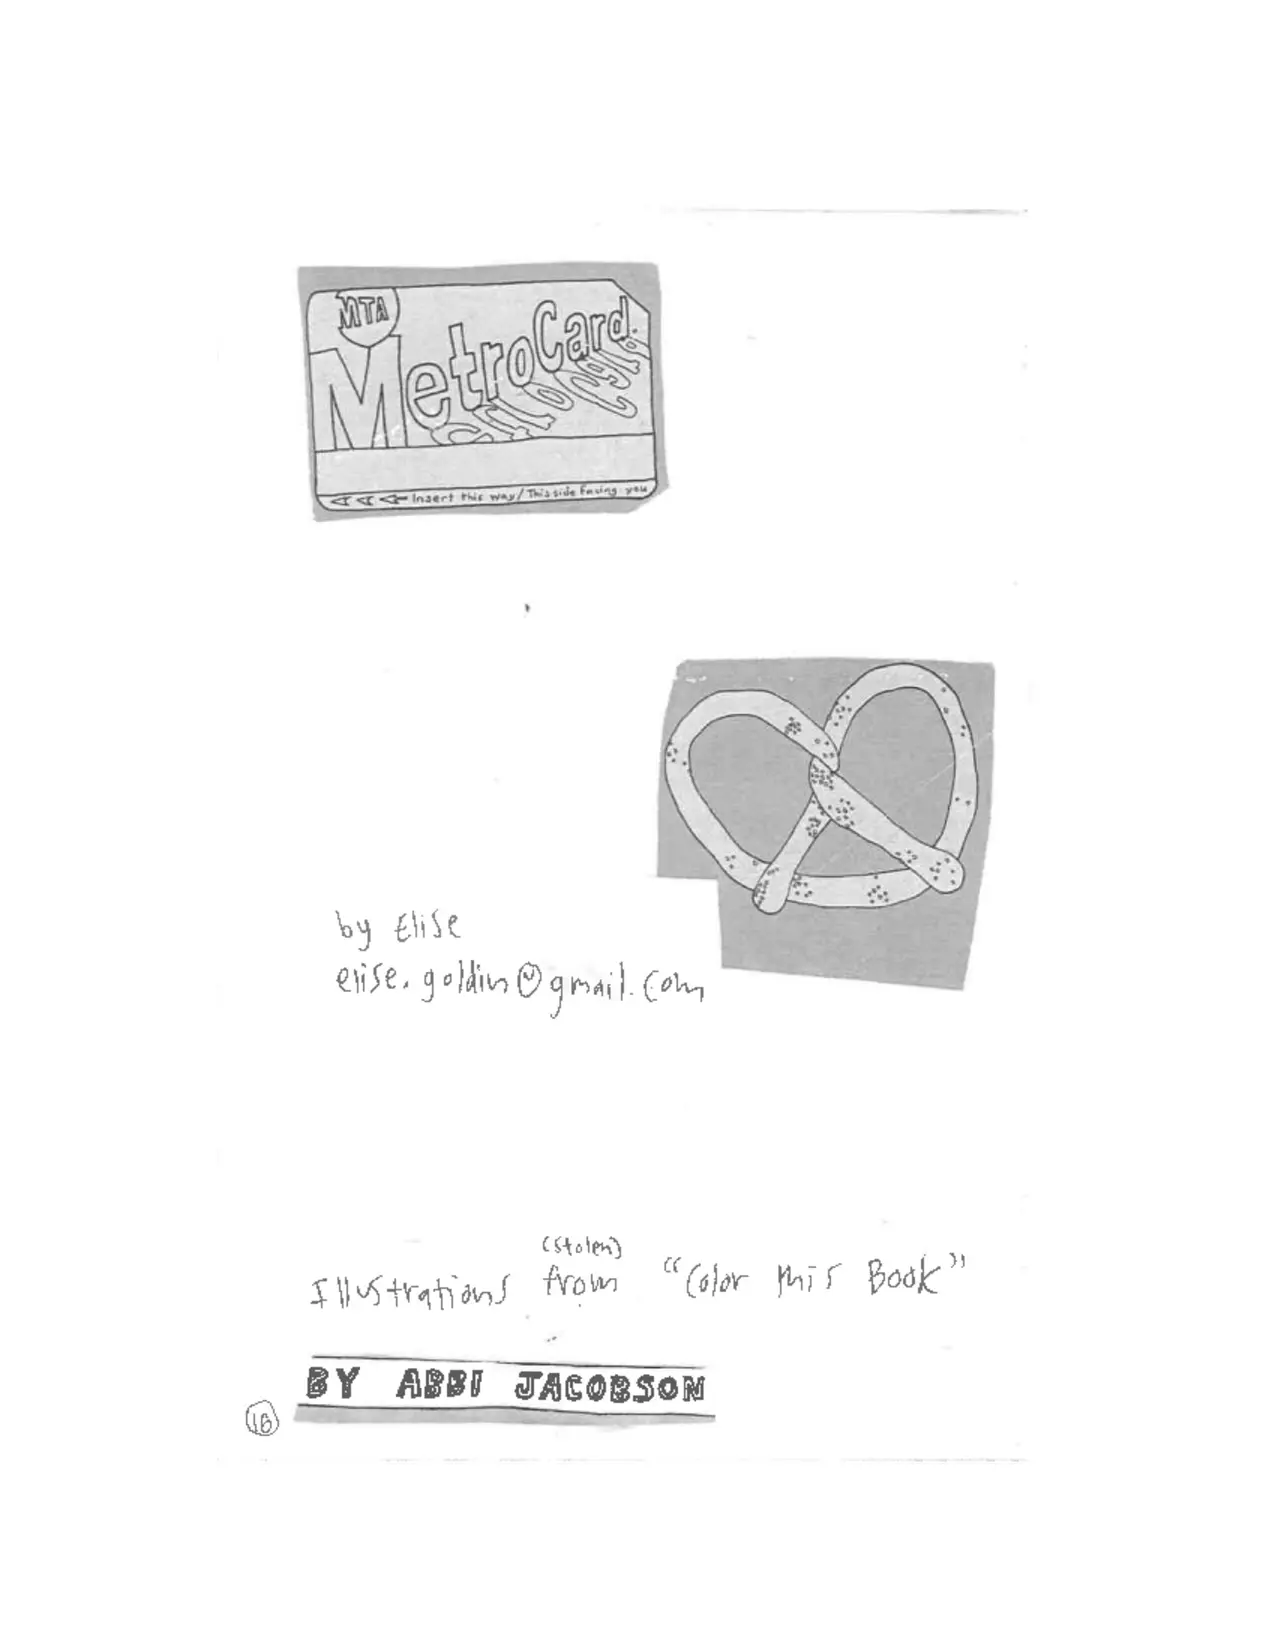 MTA
MetroCard.
Insert this way/This side facing you
by Elise
elise.goldin@gmail.com
(stolen)
Illustrations from "Color this Book"
BY ABBI JACOBSON
18